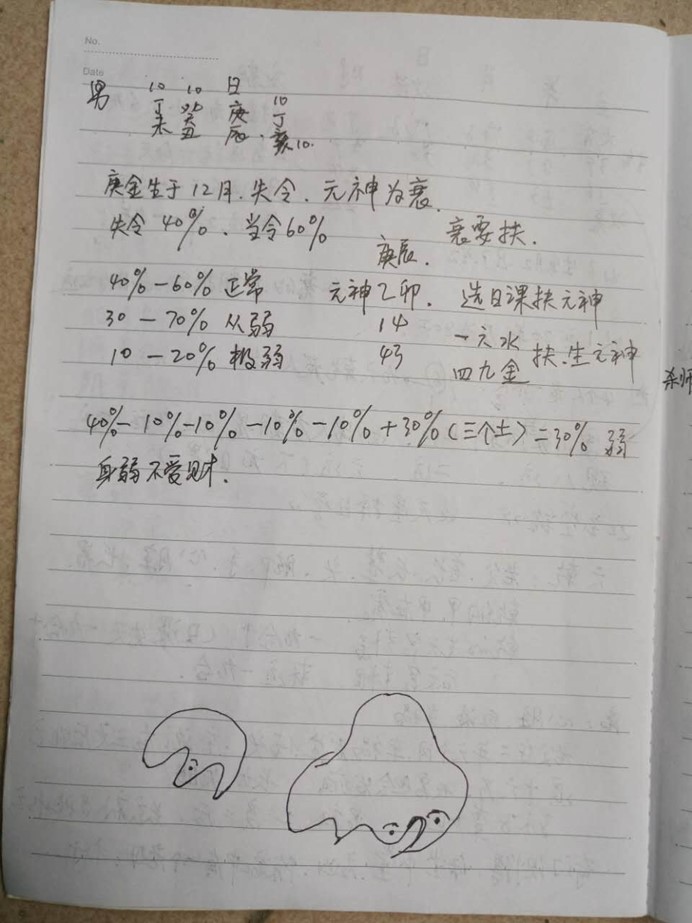 No.
Date
男 10 10 日 10
丁 癸 庚 丁
未 丑 辰 亥 10.
庚金生于12月.失令.元神为衰.
失令40%、当令60% 衰要扶.
庚辰.
40%-60% 正常 元神乙卯. 选日课扶元神
30-70% 从弱 14 一六水
10-20% 极弱 43 四九金 扶.生元神
40%-10%-10%-10%-10%+30%(三个土)=30% 弱
身弱不爱见财.